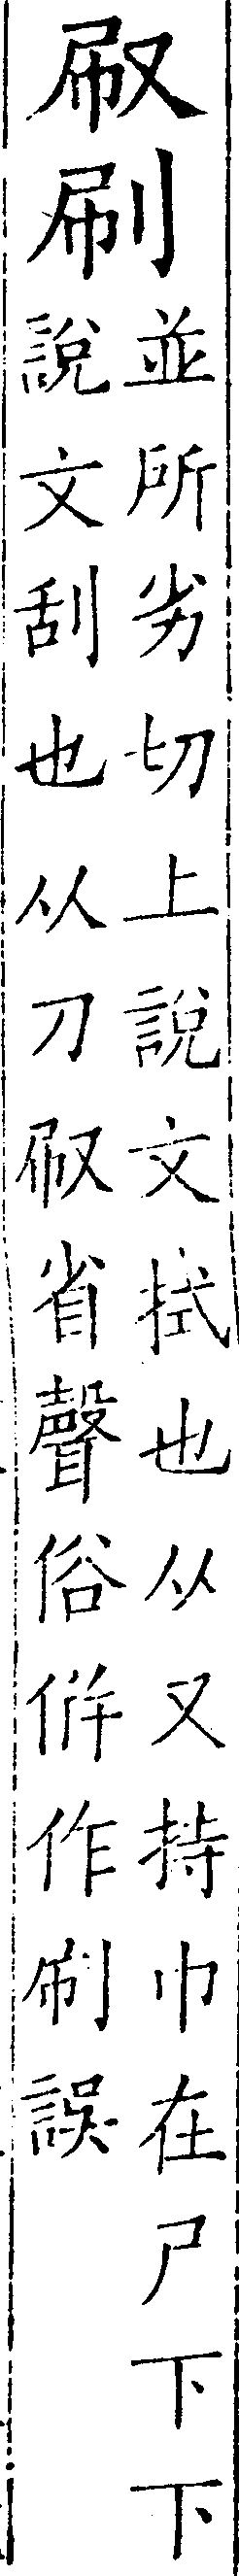 㕞刷
並所劣切上說文拭也从又持巾在尸下下
說文刮也从刀㕞省聲俗併作刷誤